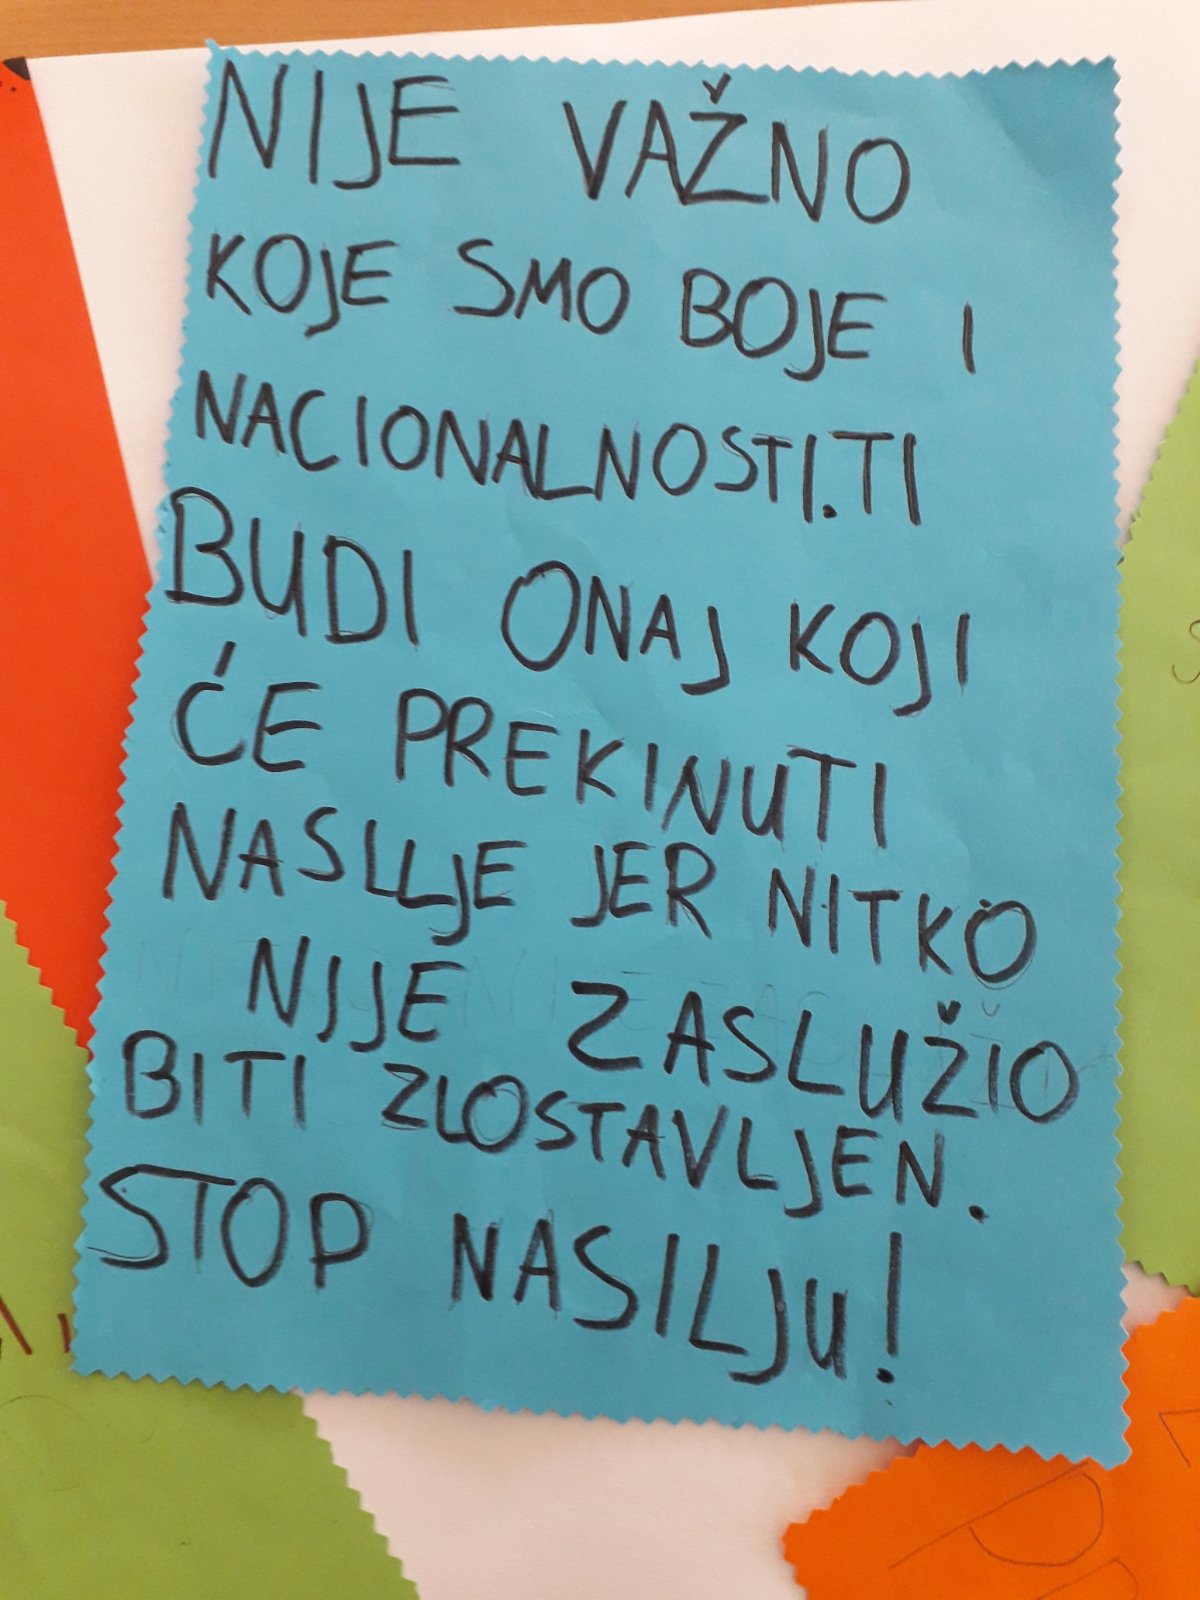 NIJE VAŽNO
KOJE SMO BOJE I
NACIONALNOSTI.TI
BUDI ONAJ KOJI
ĆE PREKINUTI
NASILJE JER NITKO
NIJE ZASLUŽIO
BITI ZLOSTAVLJEN.
STOP NASILJU!